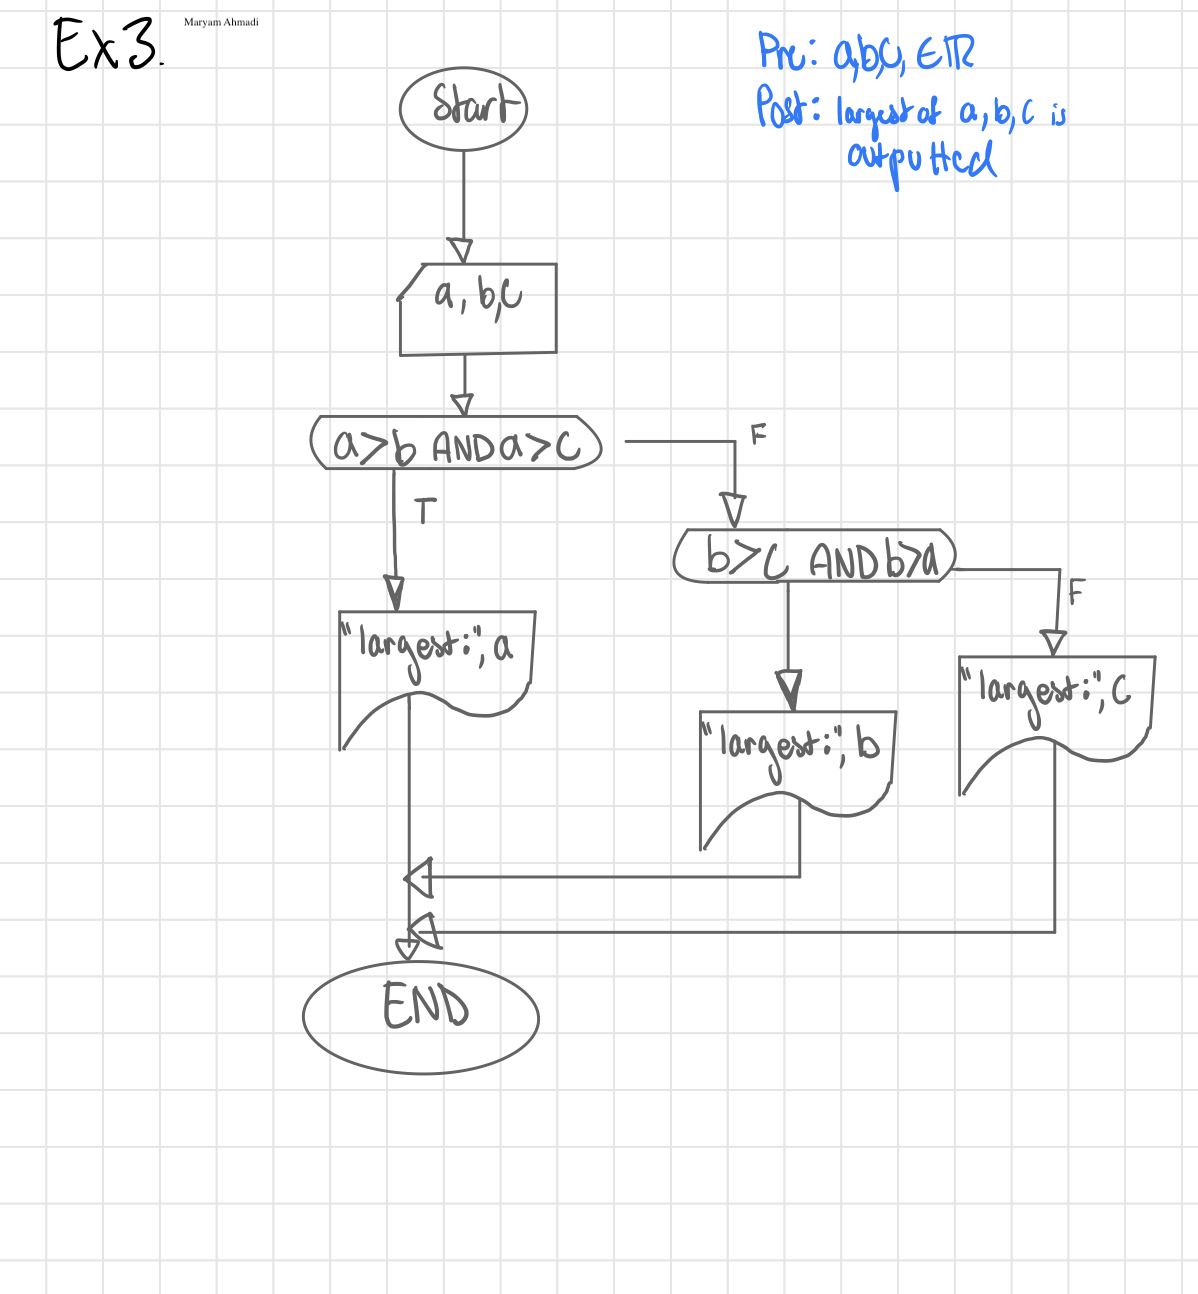 Ex3.
Maryam Ahmadi
Pre: a,b,c, ∈ℝ
Post: largest of a, b, c is
outputted
Start
a, b,c
a>b AND a>c
F
T
b>c AND b>a
F
"largest:", a
"largest:", c
"largest:", b
END